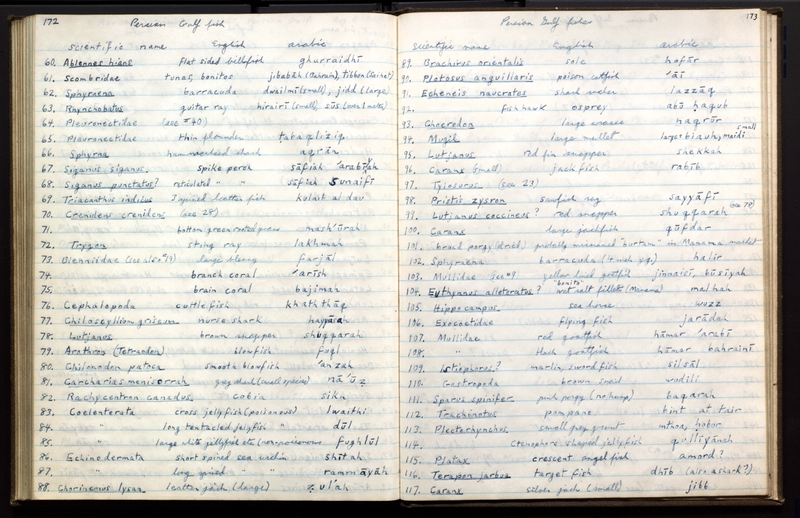 172 Persian Gulf fish
scientific name English arabic
60. Ablennes hians flat sided billfish ghurraidhī
61. Scombridae tunas, bonitos jibabāh (Bahrain), tibbon (Kuwait)
62. Sphyraena barracuda dwailmi (small), jidd (large)
63. Rhynchobatus guitar ray hirairī (small) sūs (over 1 meter)
64. Pleuronectidae (see #40)
65. Pleuronectidae thin flounder
66. Sphyrna hammerhead shark aqrān
67. Siganus siganus spike perch sāfīah
68. Siganus punctatus? reticulated " " sāfīah Sunaifī
69. Triacanthus indicus 3 spined leather fish kulait al dau
70. Crenidens crenidens (see 28)
71. bottom green rooted grass mash'ūrah
72. Trygon sting ray lakhmah
73. Blenniidae (see also #19) large blenny farjāl
74. branch coral 'arīsh
75. brain coral bajimah
76. Cephalopoda cuttlefish khaththāq
77. Chiloscyllium griseum nurse shark
78. Lutjanus brown snapper shuqqarah
79. Arothron (Tetraodon) blowfish fugl
80. Chilonodon patoca smooth blowfish 'anzah
81. Carcharias menisorrah gray shark (small species) nā'ūz
82. Rachycentron canadus cobia sikn
83. Coelenterata cross jellyfish (poisonous) lwaithi
84. " long tentacled jellyfish " dūl
85. " large white jellyfish etc. (nonpoisonous) fughlūl
86. Echinodermata short spined sea urchin shītah
87. " long spined " " rammāyāh
88. Chorinemus lysan leather jack (large) zul'ah
Persian Gulf fishes 173
Scientific name English arabic
89. Brachirus orientalis sole hofūr
90. Plotosus anguillaris poison catfish 'āī
91. Echeneis naucrates shark sucker lazzāq
92. fish hawk osprey abū haqub
93. large wrasse naqrūr
94. Mugil large mullet large: biauhy small maidī
95. Lutjanus red fin snapper shekhah
96. Caranx (small) jack fish rabīb
97. Tylosurus (see 23)
98. Pristis zysron sawfish ray sayyāfī
99. Lutjanus coccineus? red snapper shuqqarah (see 78)
100. Caranx large jackfish qūfdar
101. broad porgy (dried) probably misnamed "qurtum" in Manama market
102. Sphyraena barracuda halir
103. Mullidae (see #9) yellow lined goatfish jinnaisī, būsīyah
104. Euthynnus alleteratus? "bonito" wet salt fillets (Manama) malhah
105. Hippocampus sea horse wuzz
106. Exocoetidae flying fish jarādah
107. Mullidae red goatfish hāmar 'arabī
108. " black goatfish hāmar bahrainī
109. Istiophorus? marlin, swordfish silsūl
110. Gastropoda brown snail wadili
111. Sparus spinifer pink porgy (no hump) baqarah
112. Trachinotus pompano bint at tair
113. Plectorhynchus small gray grunt hobor
114. Ctenophore shaped jellyfish qullīyānah
115. Platax crescent angel fish amord?
116. Terapon jarbua target fish dhīb (also asha-k?)
117. Caranx silver jack (small) jibb